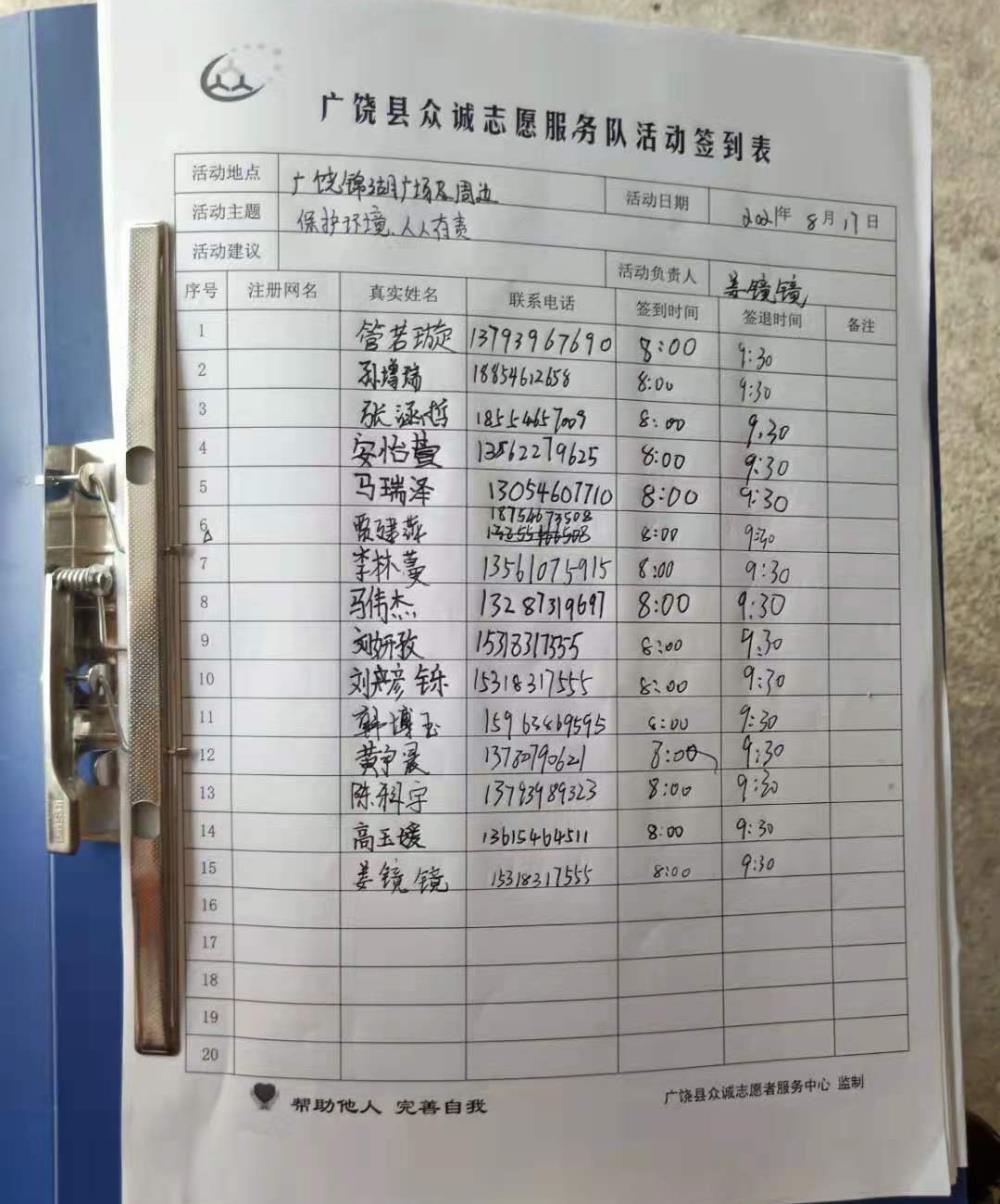 广饶县众诚志愿服务队活动签到表
活动地点 广饶锦湖广场及周边 活动日期 2021年 8月 17日
活动主题 保护环境、人人有责
活动建议 活动负责人 姜镜镜
序号 注册网名 真实姓名 联系电话 签到时间 签退时间 备注
1 管若璇 13793967690 8:00 9:30
2 孙增瑞 18854612658 8:00 9:30
3 张涵哲 18554657009 8:00 9.30
4 安怡萱 13562279625 8:00 9:30
5 马瑞泽 13054607710 8:00 9:30
6 贾建燕 18754673508 8:00 9:30
7 李林蔓 13561075915 8:00 9:30
8 马伟杰 13287319697 8:00 9:30
9 刘妍孜 15318317555 8:00 9:30
10 刘彦铄 15318317555 8:00 9:30
11 韩博玉 15963869595 8:00 9:30
12 黄宇晨 13780790621 8:00 9:30
13 陈科宇 13793989323 8:00 9:30
14 高玉媛 13615464511 8:00 9:30
15 姜镜镜 15318317555 8:00 9:30
16
17
18
19
20
帮助他人 完善自我 广饶县众诚志愿者服务中心 监制